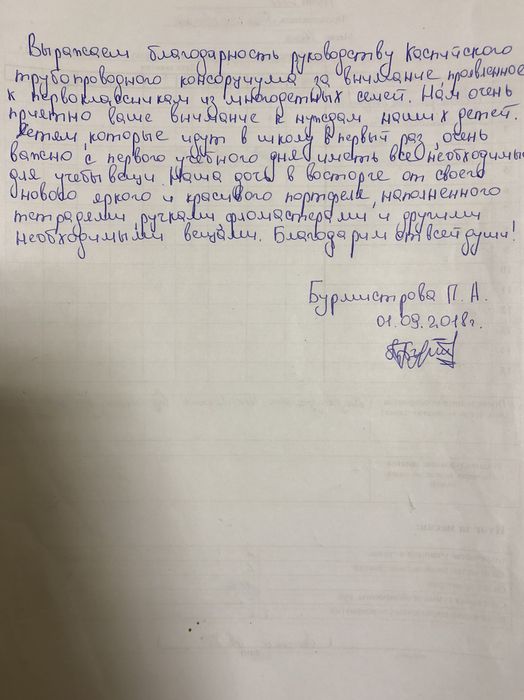 Выражаем благодарность руководству Каспийского
трубопроводного консорциума за внимание, проявленное
к первоклассникам из многодетных семей. Нам очень
приятно ваше внимание к нуждам наших детей.
Детям, которые идут в школу в первый раз, очень
важно с первого учебного дня иметь все необходимые
для учебы вещи. Наша дочь в восторге от своего
нового яркого и красивого портфеля, наполненного
тетрадями, ручками, фломастерами и другими
необходимыми вещами. Благодарим от всей души!
Бурмистрова П. А.
01.09.2018г.